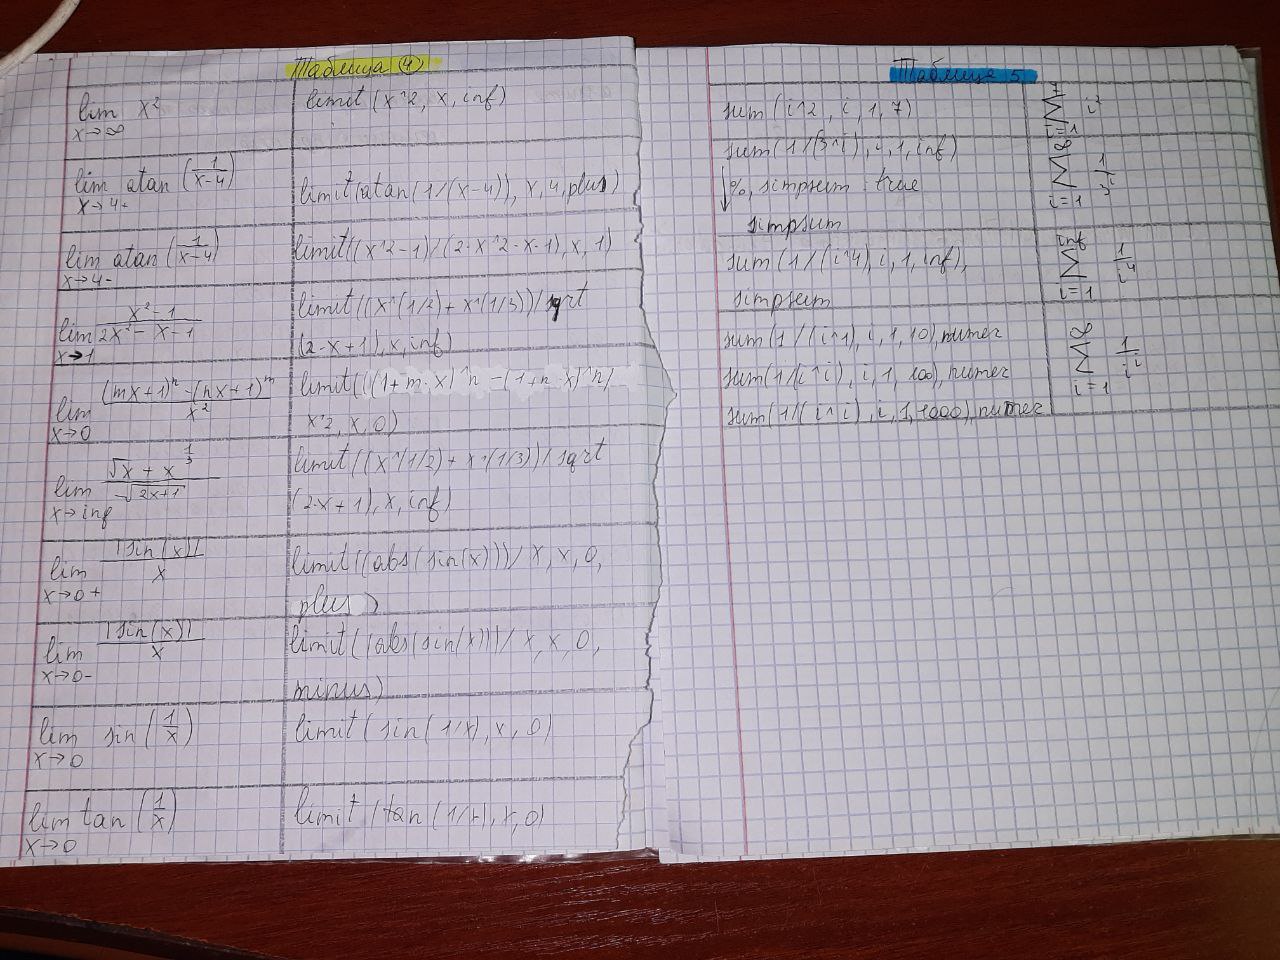 Таблица 4
lim x² limit(x^2, x, inf)
x→∞
lim atan (1/(x-4)) limit(atan(1/(x-4)), x, 4, plus)
x→4+
lim atan (1/(x-4)) limit((x^2-1)/(2·x^2-x-1), x, 1)
x→4-
lim (x²-1)/(2x²-x-1) limit((x^(1/2)+x^(1/3))/sqrt
x→1 (2·x+1), x, inf)
lim ((mx+1)ⁿ-(nx+1)ᵐ)/x² limit(((1+m·x)^n-(1+n·x)^n)/
x→0 x^2, x, 0)
lim (√x + x^(1/3))/√(2x+1) limit((x^(1/2)+x^(1/3))/sqrt
x→inf (2·x+1), x, inf)
lim |sin(x)|/x limit((abs(sin(x)))/x, x, 0,
x→0+ plus)
lim |sin(x)|/x limit((abs(sin(x)))/x, x, 0,
x→0- minus)
lim sin (1/x) limit(sin(1/x), x, 0)
x→0
lim tan (1/x) limit(tan(1/x), x, 0)
x→0
Таблица 5
sum(i^2, i, 1, 7) 7 ∑ i=1 i²
sum(1/(3^i), i, 1, inf) ∞ ∑ i=1 1/3ⁱ
↓%, simpsum : true
simpsum
sum(1/(i^4), i, 1, inf), inf ∑ i=1 1/i⁴
simpsum
sum(1/(i^1), i, 1, 10), numer ∞ ∑ i=1 1/iⁱ
sum(1/(i^i), i, 1, 100), numer
sum(1/(i^i), i, 1, 1000), numer